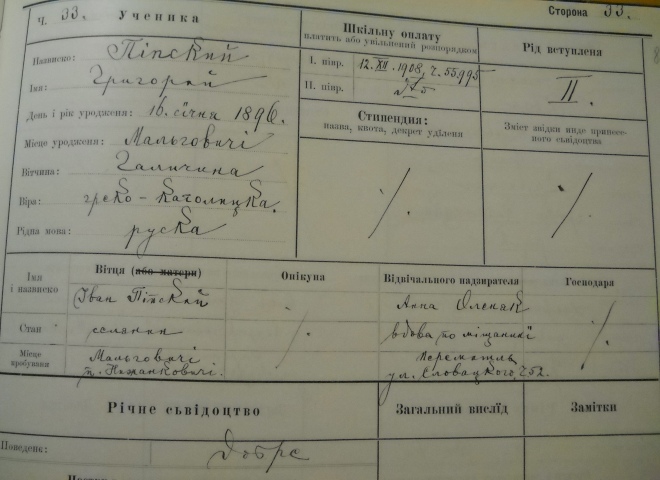 Ч. 33. Ученика
Сторона 33.
Назвиско: Піпский
Імя: Григорий
День і рік уродженя: 16. січня 1896.
Місце уродженя: Мальговичі
Вітчина: Галичина
Віра: греко-католицка.
Рідна мова: руска
Шкільну оплату
платить або увільнений розпорядком
I. півр. 12. XII. 1908, ч. 55995
II. півр.
Рід вступленя
II.
Стипендия:
назва, квота, декрет уділеня
Зміст звідки инде принесеного сьвідоцтва
Імя і назвиско
Вітця (або матери)
Опікуна
Відвічального надзирателя
Господаря
Іван Піпский
Анна Олєняк
Стан
селянин
вдова по міщанинї
Місце пробуваня
Мальговичі
п. Нижанковичі.
Перемишль
ул. Словацкого, ч. 52.
Річне сьвідоцтво
Загальний вислїд
Замітки
Поведенє: добре